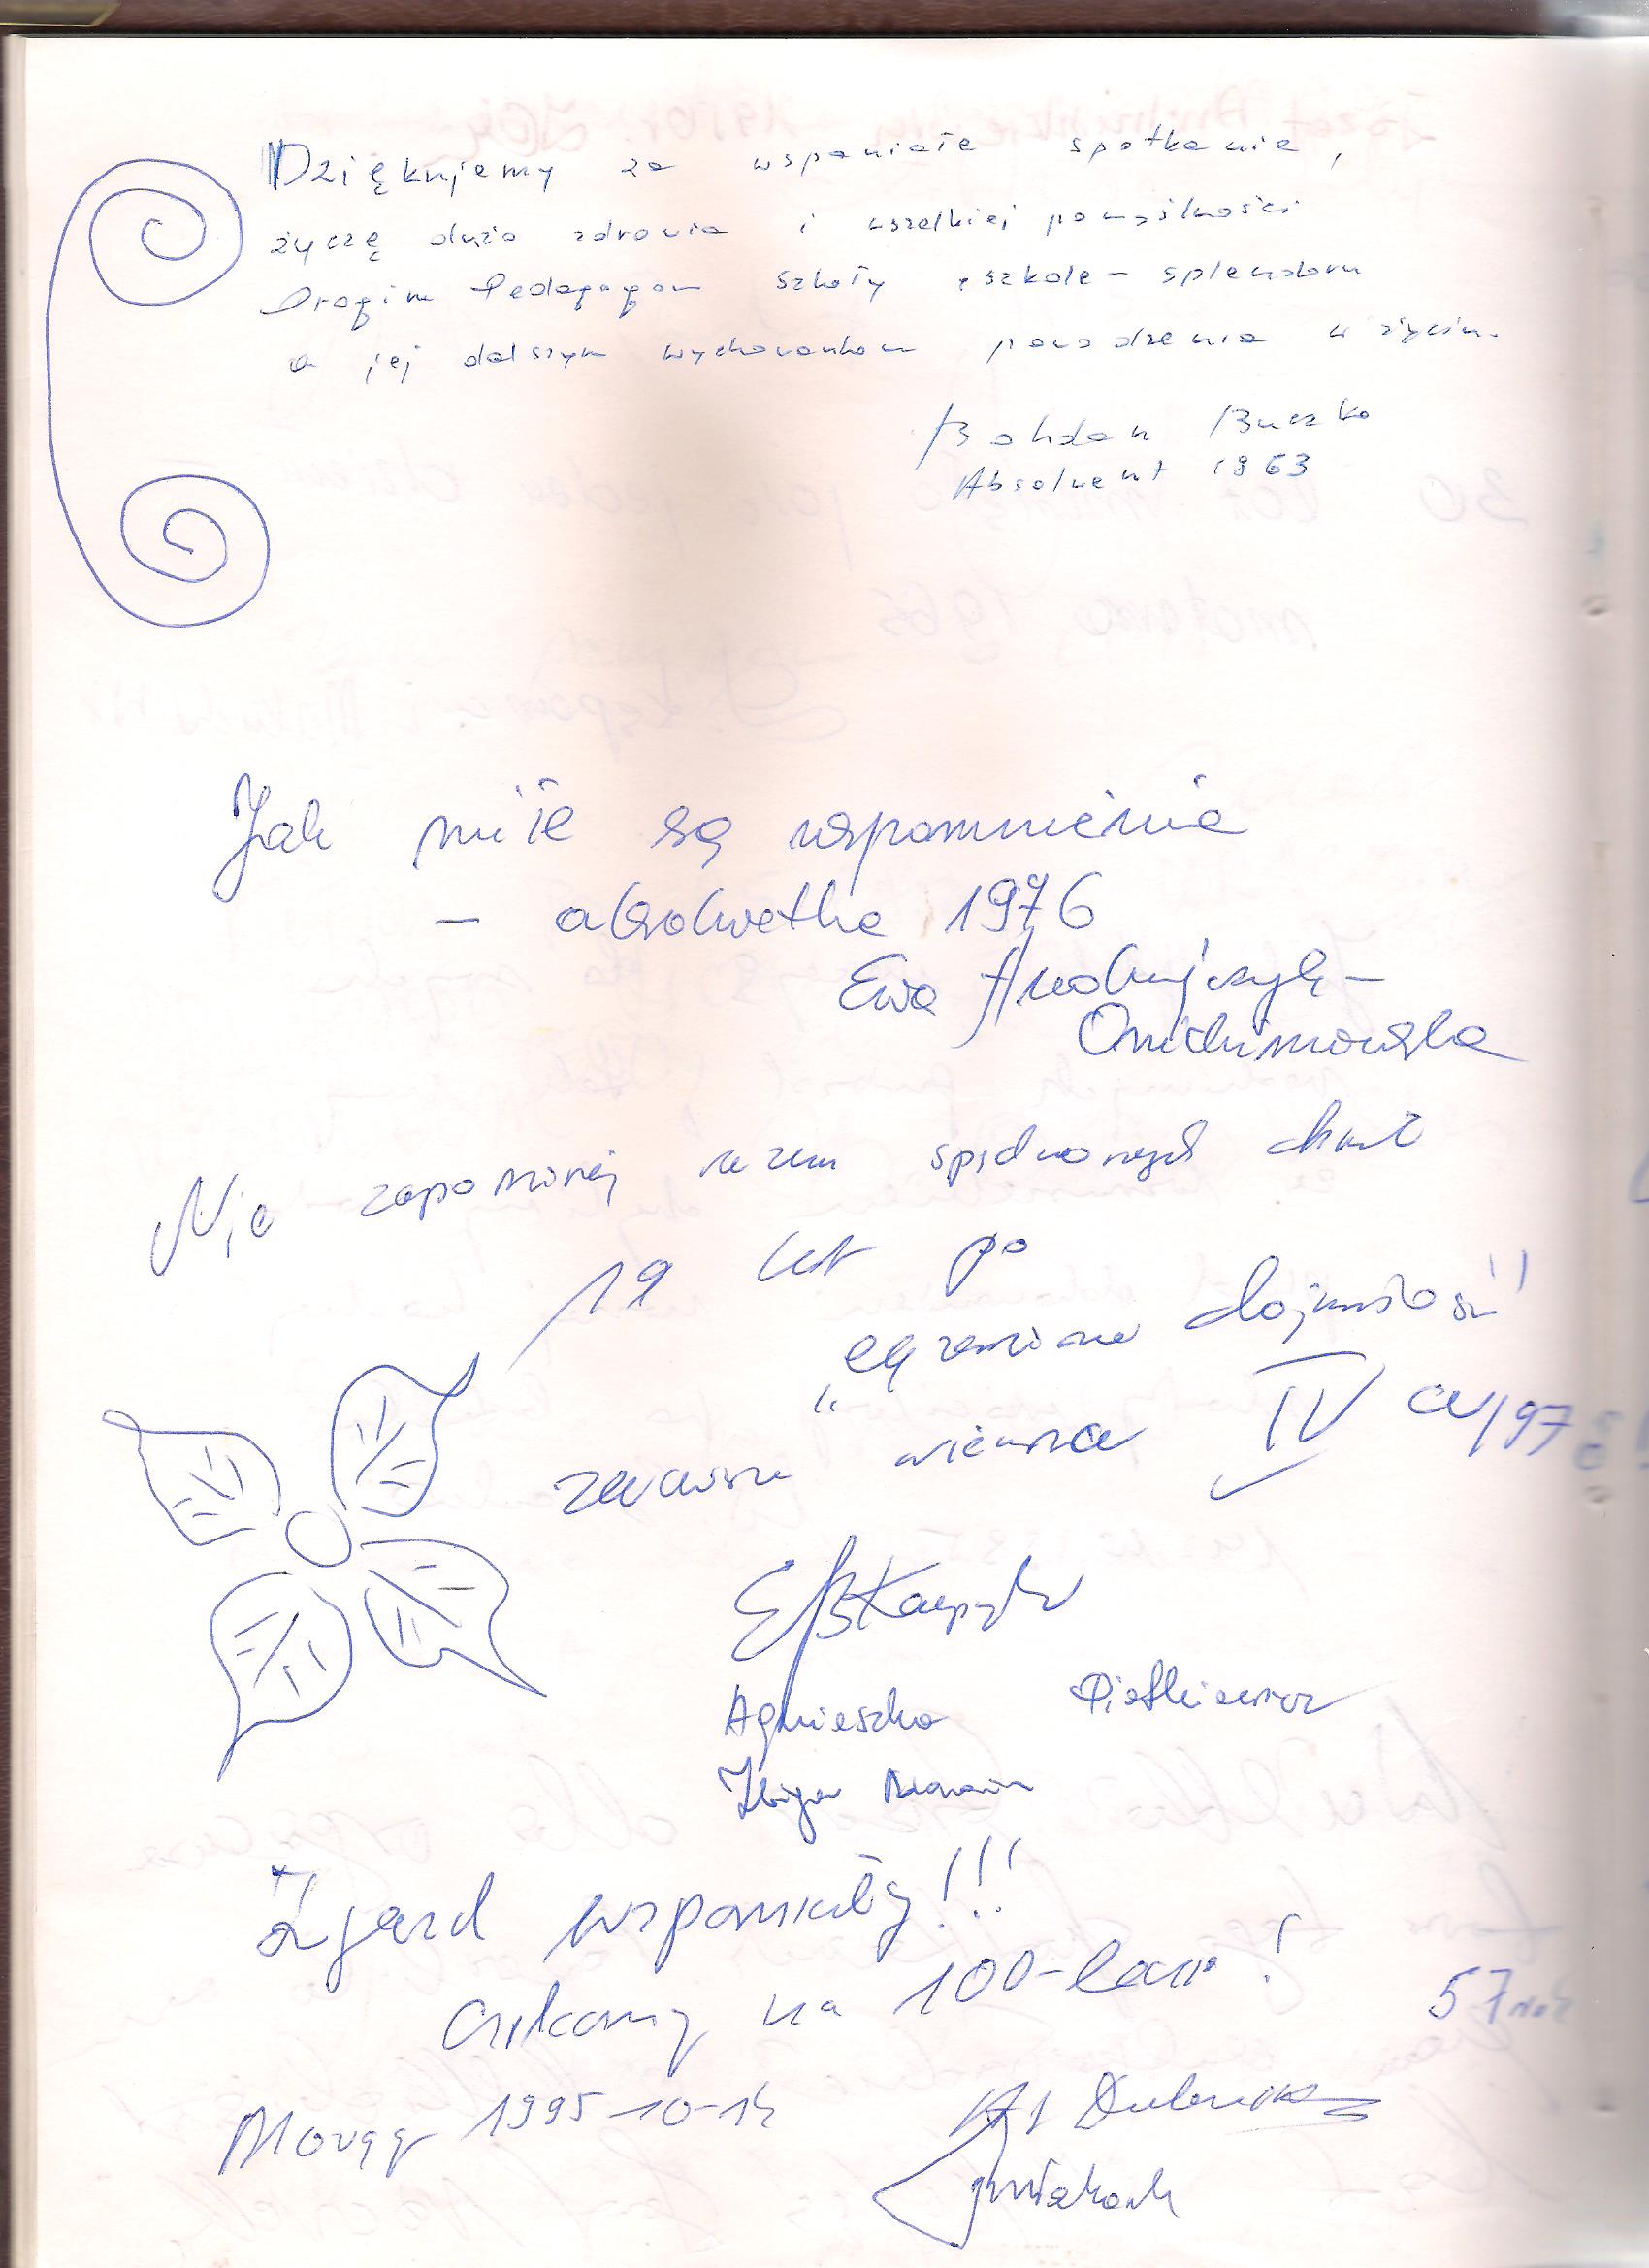 Dziękujemy za wspaniałe spotkanie,
życzę dużo zdrowia i wszelkiej pomyślności
Drogim Pedagogom szkoły, szkole – splendoru
a jej dalszym wychowankom powodzenia w życiu.
Bohdan Buczko
Absolwent 1963
Jak miłe są wspomnienia
– absolwentka 1976
Ewa
Nie zapomnij razem spędzonych chwil
19 lat po
"egzaminie dojrzałości"
zawsze wierna IV a/97
Agnieszka Pietkiewicz
Zjazd wspaniały!!!
Czekamy na 100-lecie!
57 rok
Morąg 1995-10-14